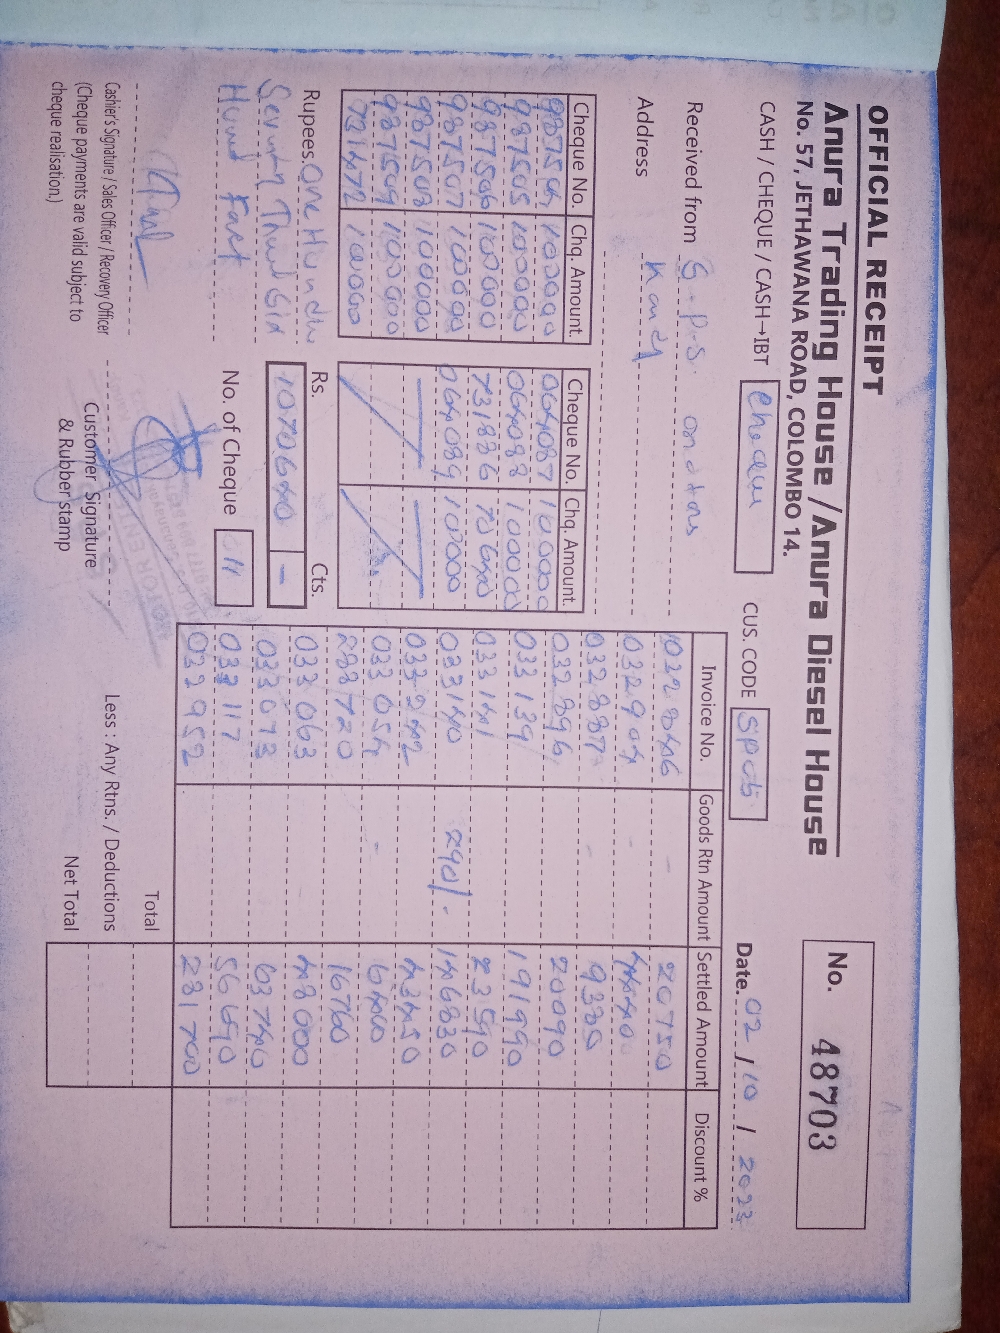 OFFICIAL RECEIPT
Anura Trading House / Anura Diesel House
No. 57, JETHAWANA ROAD, COLOMBO 14.
No. 48703
CASH / CHEQUE / CASH→IBT
CUS. CODE
Date. 02 / 10 / 2023
Received from G.P.S.
Address Kandy
Cheque No. Chq. Amount. Cheque No. Chq. Amount.
987504 100000 064087 100000
987505 100000 064088 100000
987506 100000 731886 70640
987507 100000 064089 100000
987508 100000
987509 100000
731472 100000
Rupees. One Hundred
Seventy
Rs. Cts.
1070640 -
No. of Cheque 11
Invoice No. Goods Rtn Amount Settled Amount Discount %
1022846 - 20750
032904 - 44540
032887 - 9380
032896 20090
033139 191990
033141 23590
033140 290/- 146830
033242 43450
033054 - 6400
288720 16760
033063 48000
033073 63740
033117 56690
032952 281700
Total
Less : Any Rtns. / Deductions
Net Total
Cashier's Signature / Sales Officer / Recovery Officer
(Cheque payments are valid subject to
cheque realisation.)
Customer Signature
& Rubber stamp